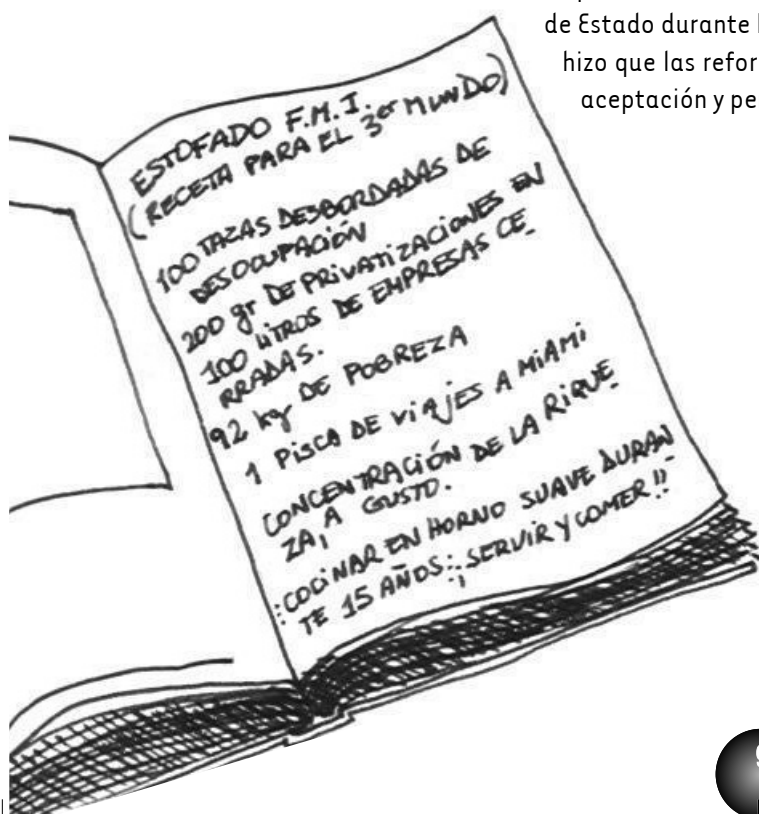 de Estado durante
hizo que las refor
aceptación y pe
ESTOFADO F.M.I.
(RECETA PARA EL 3er MUNDO)
100 TAZAS DESBORDADAS DE
DESOCUPACIÓN
200 gr DE PRIVATIZACIONES EN
100 LITROS DE EMPRESAS CE_
RRADAS.
92 kg DE POBREZA
1 PISCA DE VIAJES A MIAMI
CONCENTRACIÓN DE LA RIQUE_
ZA, A GUSTO.
:COCINAR EN HORNO SUAVE DURAN_
TE 15 AÑOS:, SERVIR Y COMER!!
9